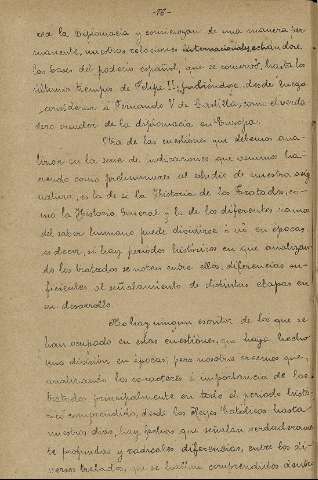 -78-
rea la Diplomacia y comienzan de una manera per
manente, nuestras relaciones internacionales, echandose
las bases del poderio español, que se conservó hasta los
últimos tiempos de Felipe II; pudiendose, desde luego
considerar á Fernando V de Castilla, como el verda
dero creador de la diplomacia en Europa.
Otra de las cuestiones que debemos ana-
lizar en la serie de indicaciones que venimos ha-
ciendo como preliminares al estudio de nuestra asig
natura, es la de si la Historia de los Tratados, co-
mo la Historia General y la de los diferentes ramos
del saber humano puede dividirse ó no en épocas
es decir, si hay periodos históricos en que analizan-
do los tratados se noten entre ellos, diferencias su-
ficientes al señalamiento de distintas etapas en
su desarrollo.
No hay ningun escritor de los que se
han ocupado en estas cuestiones, que haya hecho
una division en épocas, pero nosotros creemos que,
analizando los caracteres é importancia de los
tratados principalmente en todo el periodo histó-
rico comprendido, desde los Reyes Catolicos hasta
nuestros dias, hay fechas que señalan verdaderamen
te profundas y radicales diferencias, entre los di-
versos tratados, que se hallan comprendidos dentro